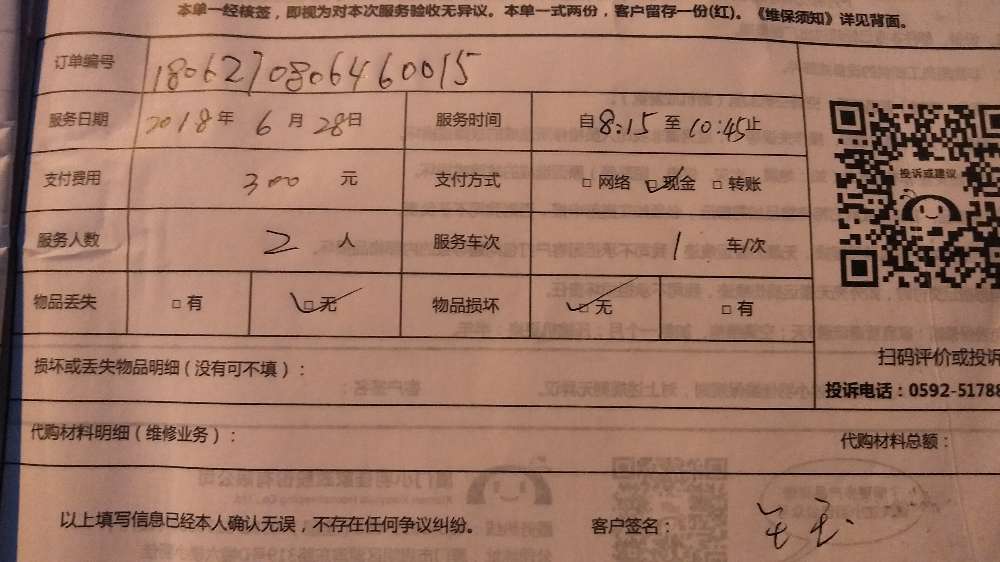 本单一经核签，即视为对本次服务验收无异议。本单一式两份，客户留存一份(红)。《维保须知》详见背面。
订单编号 1806270806460015
服务日期 2018年 6月28日 服务时间 自8:15至10:45止
支付费用 300 元 支付方式 □网络 ☑现金 □转账
服务人数 2 人 服务车次 1 车/次
物品丢失 □有 ☑无 物品损坏 ☑无 □有
投诉或建议
损坏或丢失物品明细（没有可不填）：
扫码评价或投诉
投诉电话：0592-51788
代购材料明细（维修业务）：
代购材料总额：
以上填写信息已经本人确认无误，不存在任何争议纠纷。 客户签名：